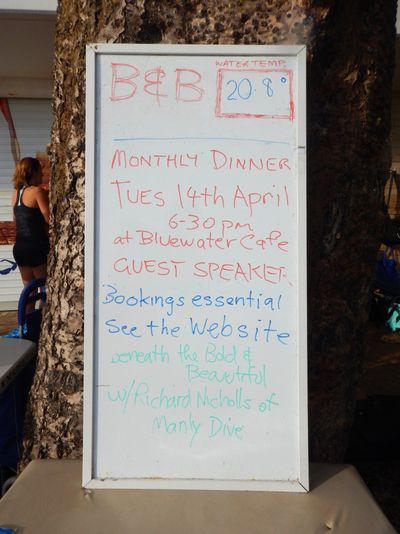 B&B
WATER TEMP.
20.8°
MONTHLY DINNER
TUES 14th April
6-30 pm
at Bluewater Cafe
GUEST SPEAKER.
Bookings essential
See the Website
beneath the Bold &
Beautiful
w/Richard Nicholls of
Manly Dive